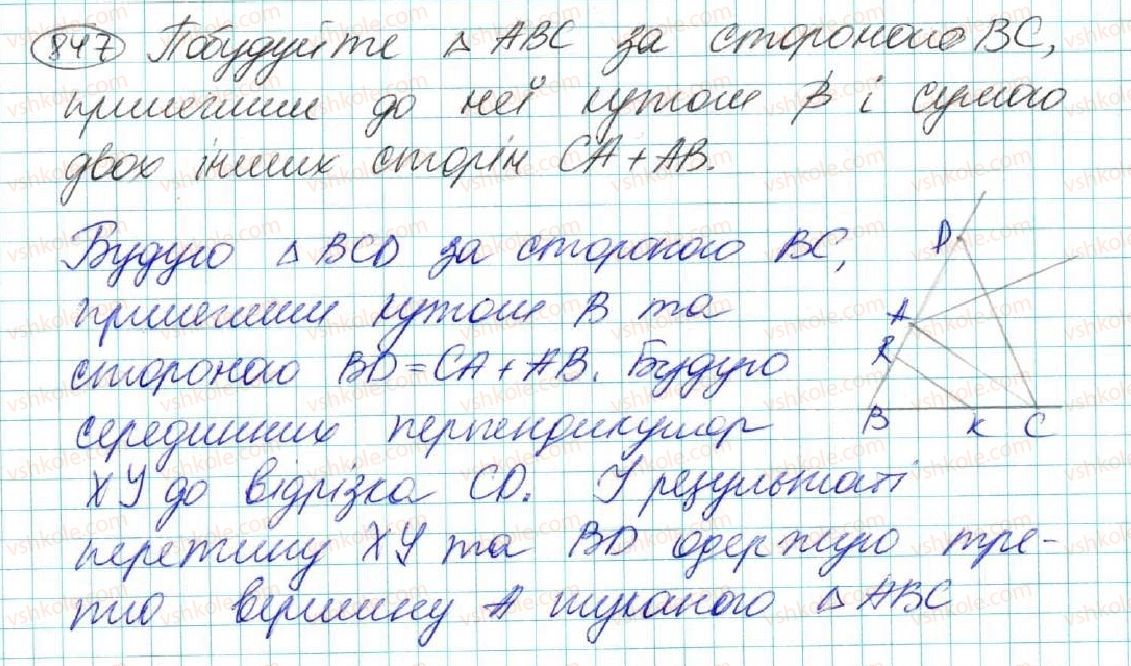 847 Побудуйте △ ABC за стороною BC,
прилеглим до неї кутом B і сумою
двох інших сторін CA + AB.
Будую △ BCD за стороною BC,
прилеглим кутом B та
стороною BD = CA + AB. Будую
серединних перпендикуляр
XY до відрізка CD. У результаті
перетину XY та BD одержую тре-
тю вершину A шуканого △ ABC
D
A
R
B K C